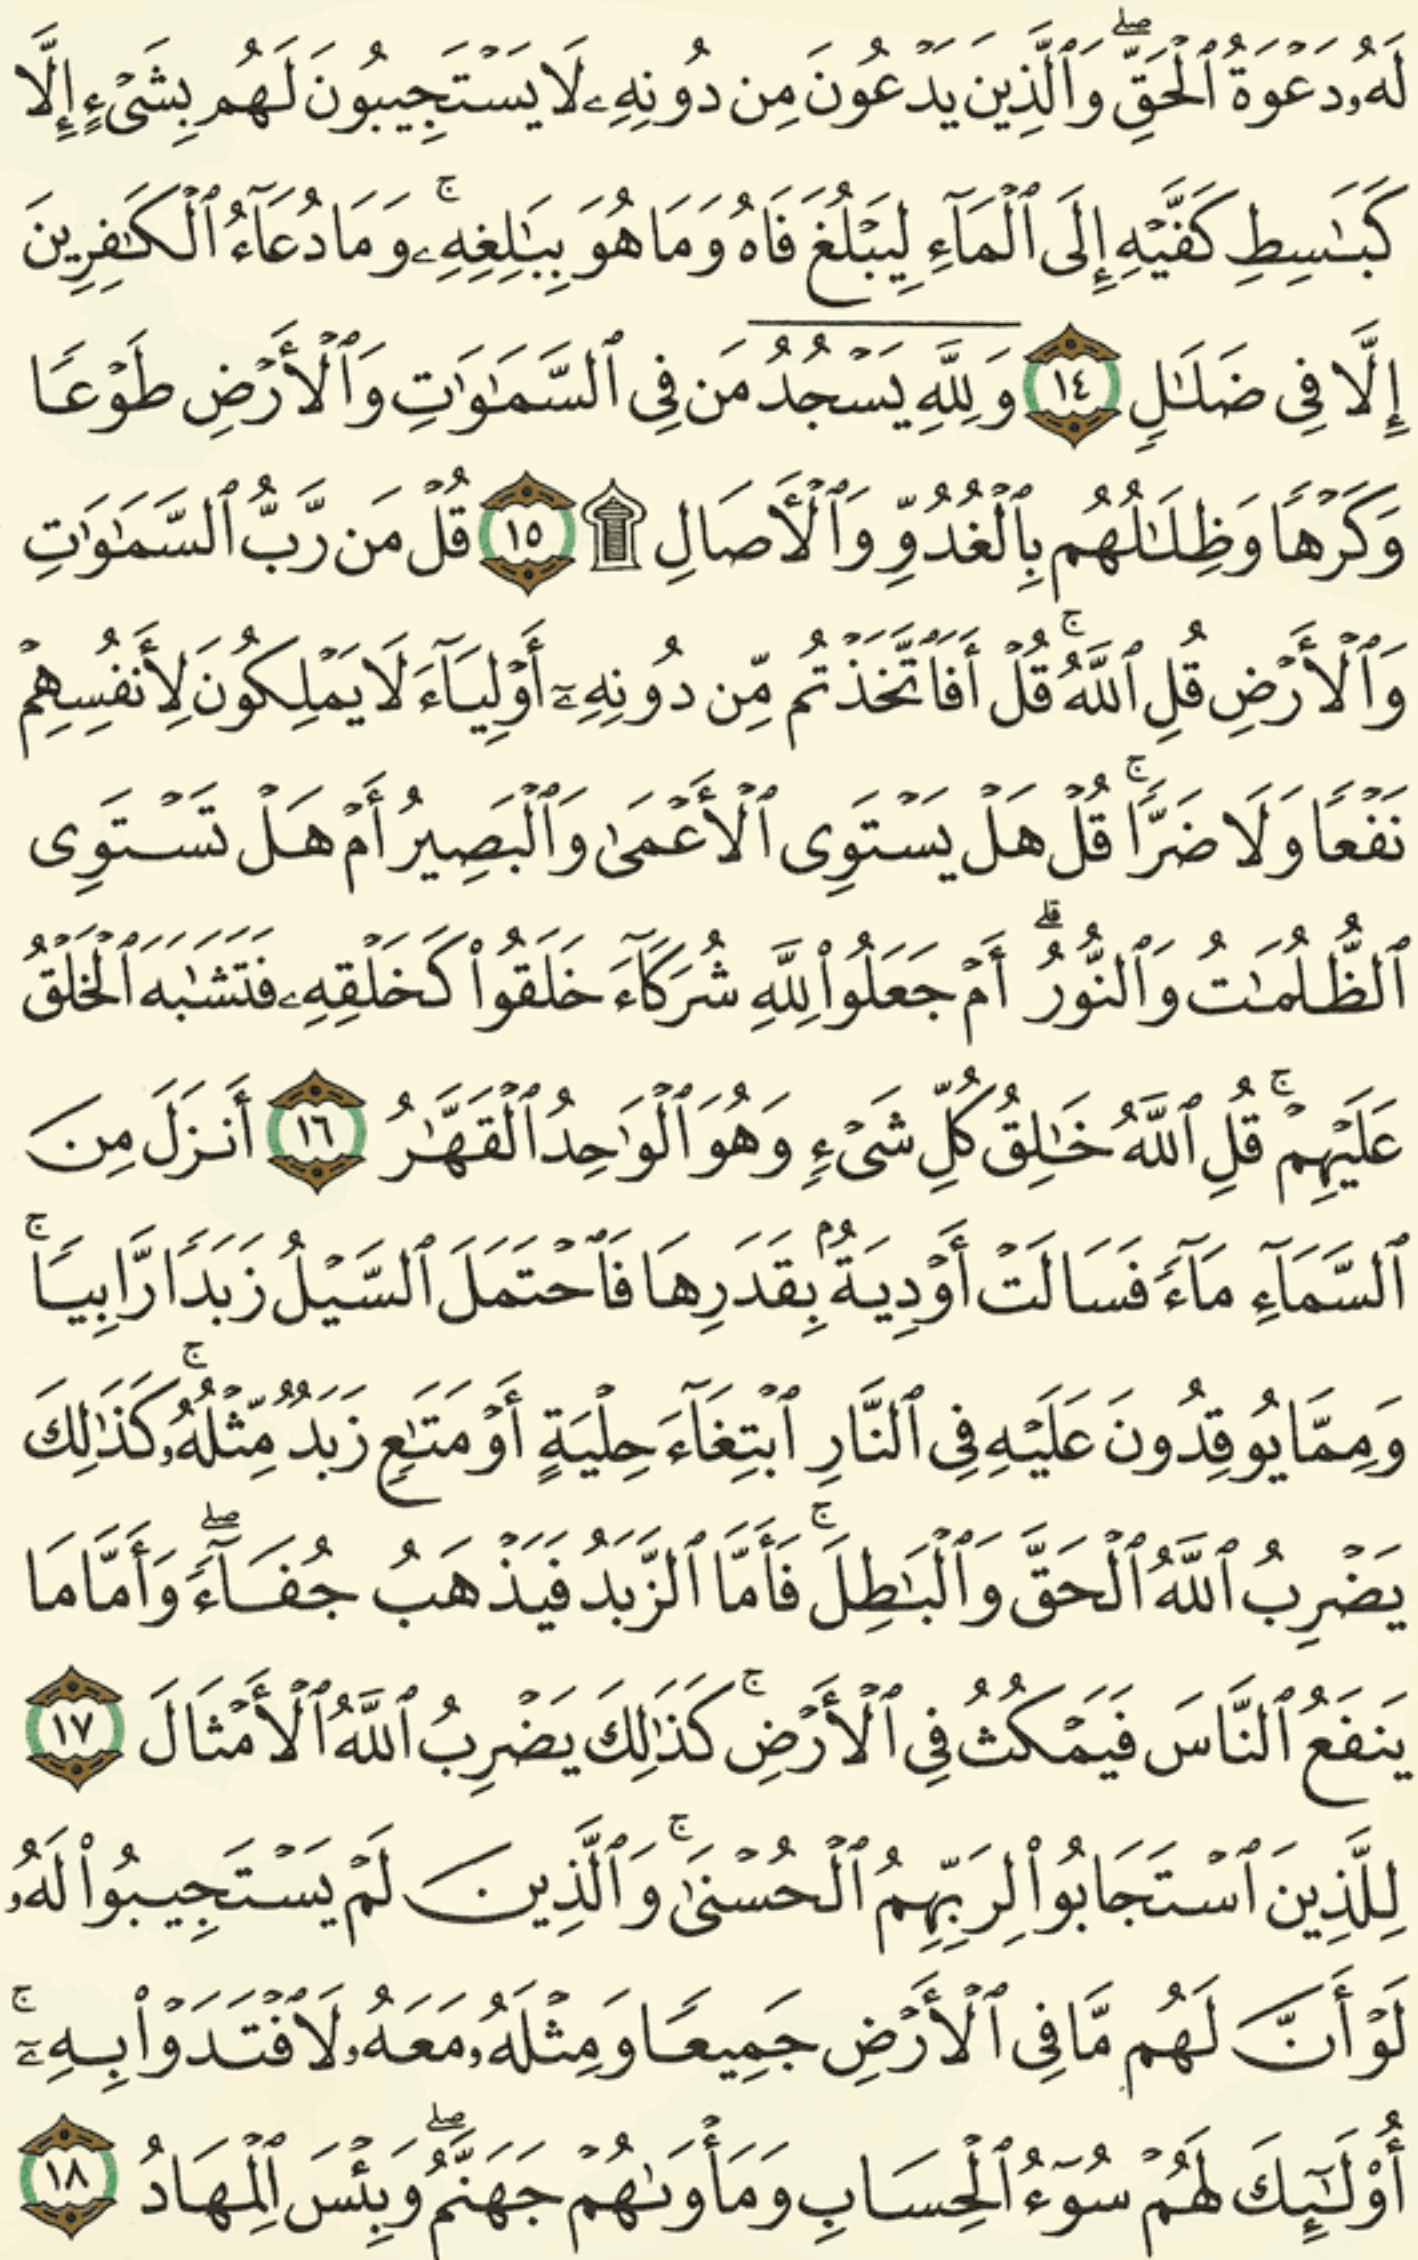 لَهُۥ دَعْوَةُ ٱلْحَقِّ ۖ وَٱلَّذِينَ يَدْعُونَ مِن دُونِهِۦ لَا يَسْتَجِيبُونَ لَهُم بِشَىْءٍ إِلَّا
كَبَٰسِطِ كَفَّيْهِ إِلَى ٱلْمَآءِ لِيَبْلُغَ فَاهُ وَمَا هُوَ بِبَٰلِغِهِۦ ۚ وَمَا دُعَآءُ ٱلْكَٰفِرِينَ
إِلَّا فِى ضَلَٰلٍ ١٤ وَلِلَّهِ يَسْجُدُ مَن فِى ٱلسَّمَٰوَٰتِ وَٱلْأَرْضِ طَوْعًا
وَكَرْهًا وَظِلَٰلُهُم بِٱلْغُدُوِّ وَٱلْءَاصَالِ ۩ ١٥ قُلْ مَن رَّبُّ ٱلسَّمَٰوَٰتِ
وَٱلْأَرْضِ قُلِ ٱللَّهُ ۚ قُلْ أَفَٱتَّخَذْتُم مِّن دُونِهِۦٓ أَوْلِيَآءَ لَا يَمْلِكُونَ لِأَنفُسِهِمْ
نَفْعًا وَلَا ضَرًّا ۚ قُلْ هَلْ يَسْتَوِى ٱلْأَعْمَىٰ وَٱلْبَصِيرُ أَمْ هَلْ تَسْتَوِى
ٱلظُّلُمَٰتُ وَٱلنُّورُ ۗ أَمْ جَعَلُوا۟ لِلَّهِ شُرَكَآءَ خَلَقُوا۟ كَخَلْقِهِۦ فَتَشَٰبَهَ ٱلْخَلْقُ
عَلَيْهِمْ ۚ قُلِ ٱللَّهُ خَٰلِقُ كُلِّ شَىْءٍ وَهُوَ ٱلْوَٰحِدُ ٱلْقَهَّٰرُ ١٦ أَنزَلَ مِنَ
ٱلسَّمَآءِ مَآءً فَسَالَتْ أَوْدِيَةٌۢ بِقَدَرِهَا فَٱحْتَمَلَ ٱلسَّيْلُ زَبَدًا رَّابِيًا ۚ
وَمِمَّا يُوقِدُونَ عَلَيْهِ فِى ٱلنَّارِ ٱبْتِغَآءَ حِلْيَةٍ أَوْ مَتَٰعٍ زَبَدٌ مِّثْلُهُۥ ۚ كَذَٰلِكَ
يَضْرِبُ ٱللَّهُ ٱلْحَقَّ وَٱلْبَٰطِلَ ۚ فَأَمَّا ٱلزَّبَدُ فَيَذْهَبُ جُفَآءً ۖ وَأَمَّا مَا
يَنفَعُ ٱلنَّاسَ فَيَمْكُثُ فِى ٱلْأَرْضِ ۚ كَذَٰلِكَ يَضْرِبُ ٱللَّهُ ٱلْأَمْثَالَ ١٧
لِلَّذِينَ ٱسْتَجَابُوا۟ لِرَبِّهِمُ ٱلْحُسْنَىٰ ۚ وَٱلَّذِينَ لَمْ يَسْتَجِيبُوا۟ لَهُۥ
لَوْ أَنَّ لَهُم مَّا فِى ٱلْأَرْضِ جَمِيعًا وَمِثْلَهُۥ مَعَهُۥ لَٱفْتَدَوْا۟ بِهِۦٓ ۚ
أُو۟لَٰٓئِكَ لَهُمْ سُوٓءُ ٱلْحِسَابِ وَمَأْوَىٰهُمْ جَهَنَّمُ ۖ وَبِئْسَ ٱلْمِهَادُ ١٨